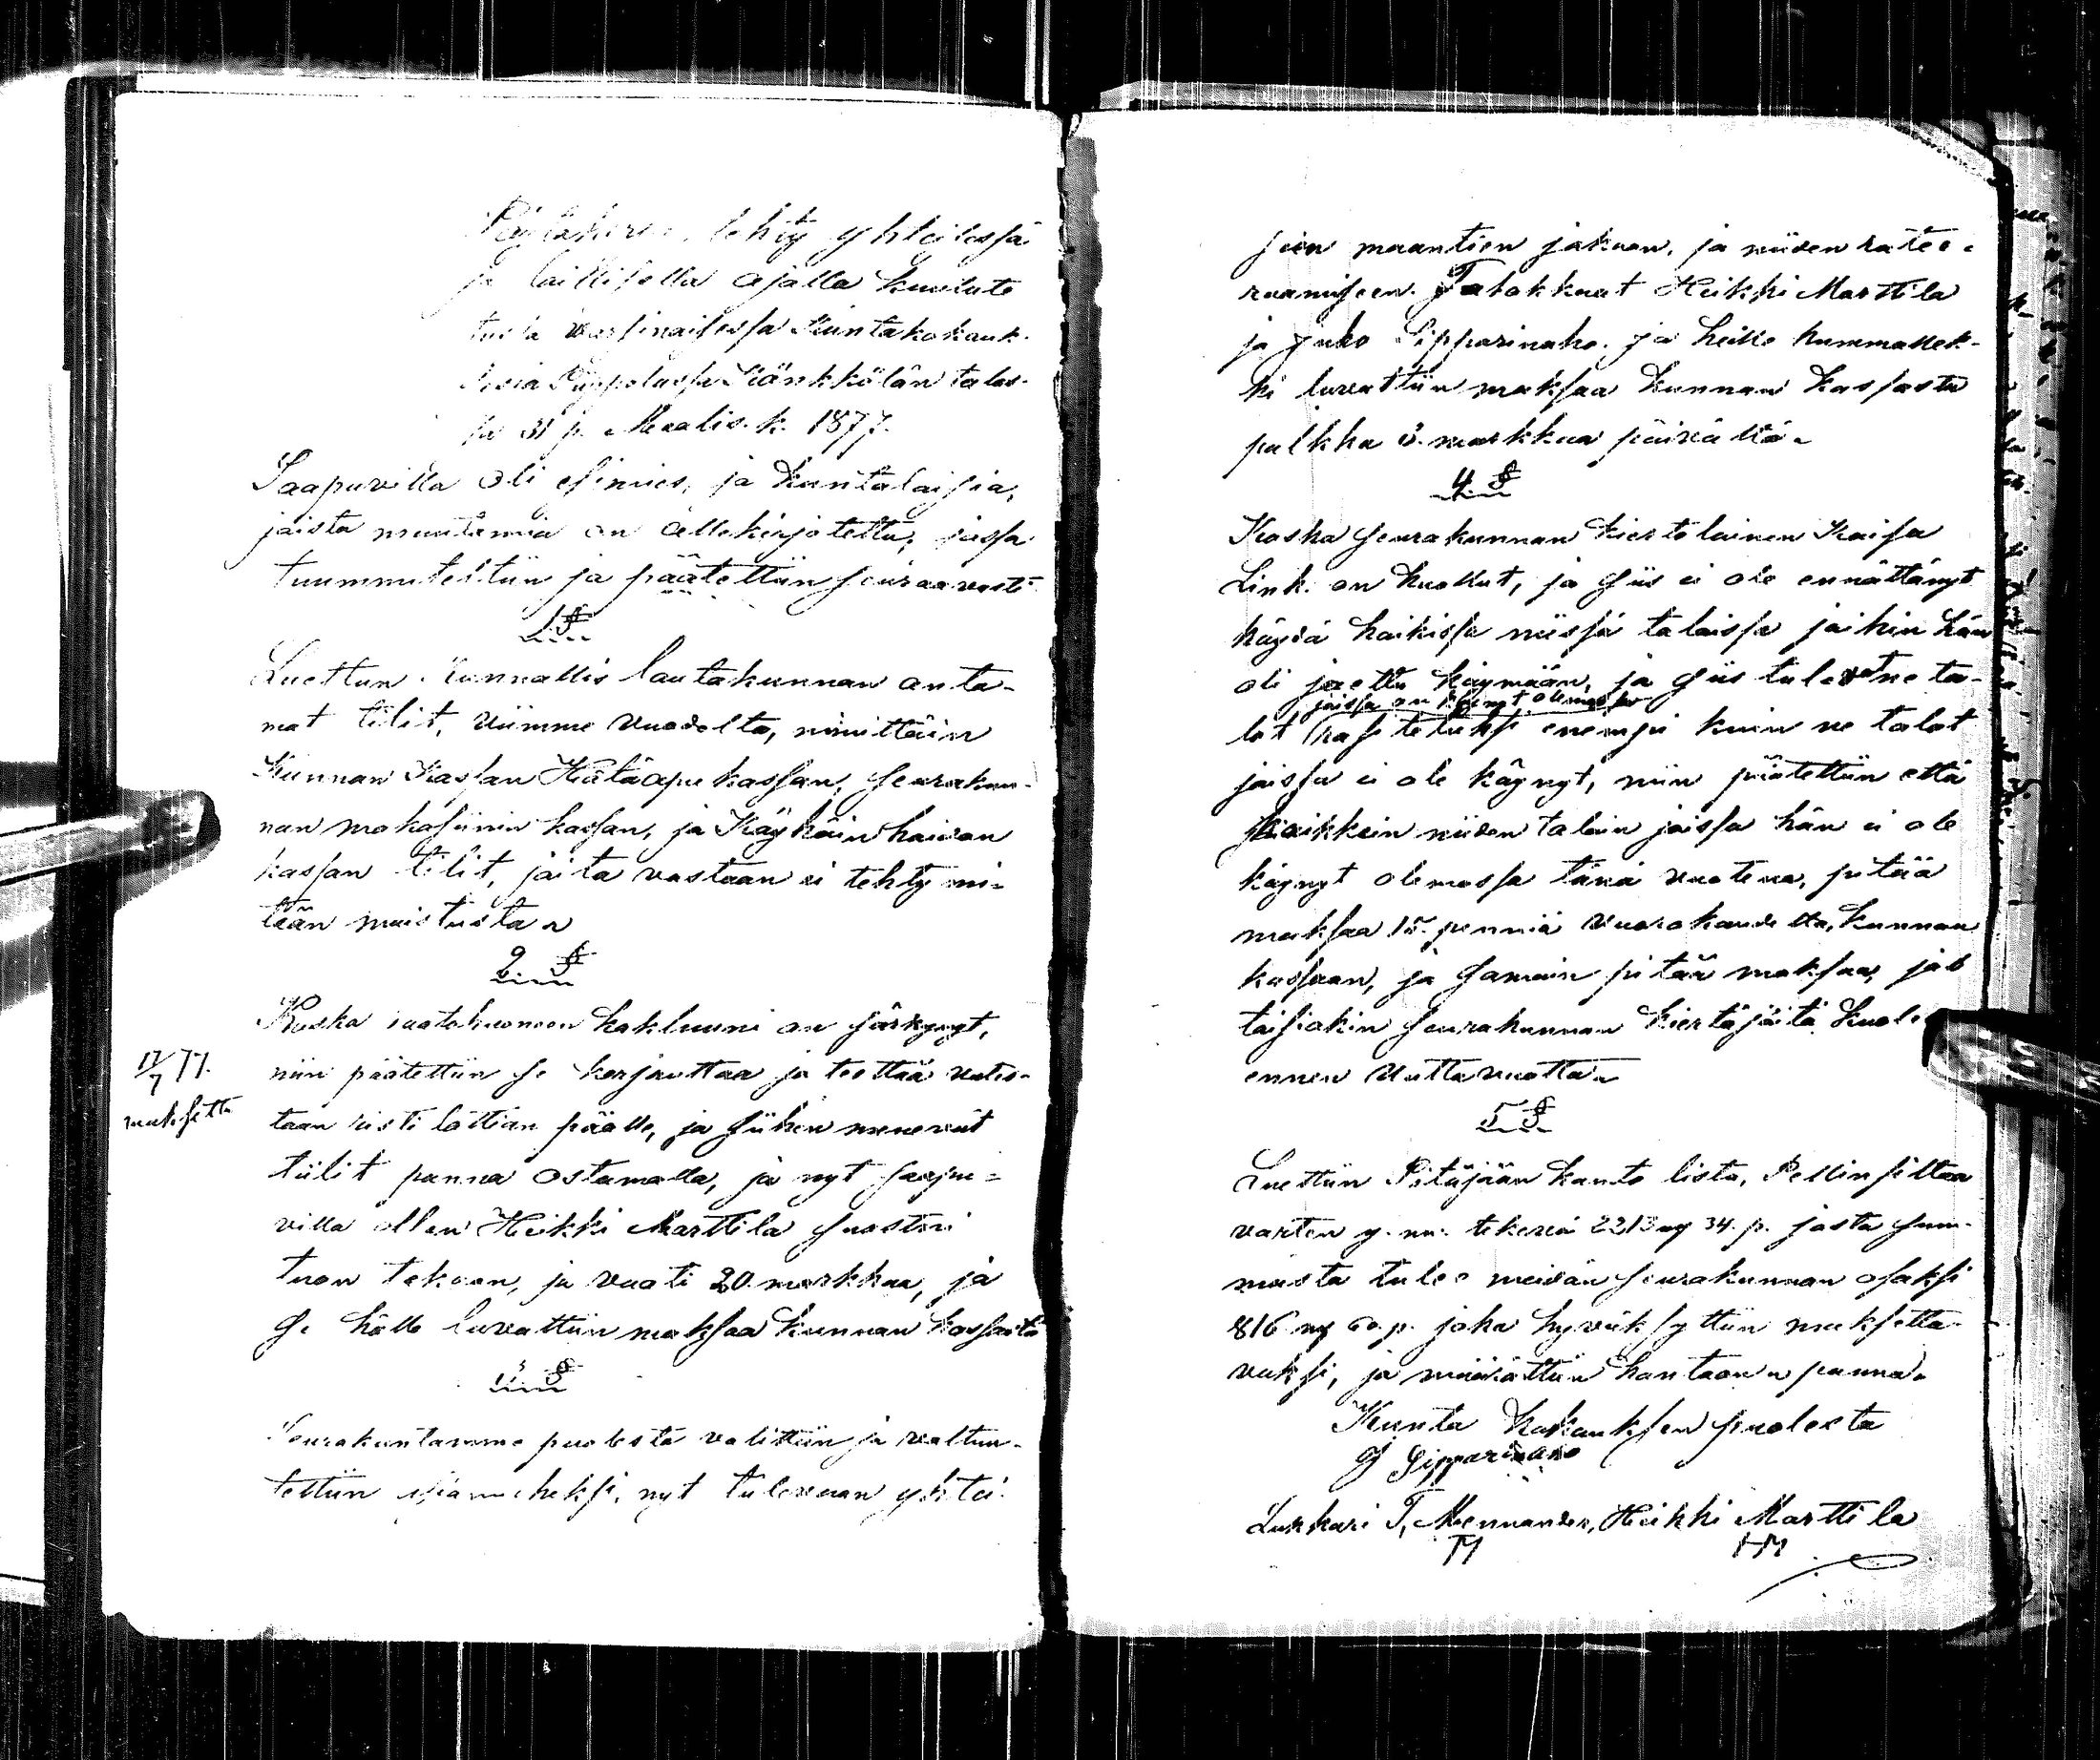 Pöytäkirja, tehty yhteisessä
ja laillisella ajalla kuulute
tussa varsinaisessa Kuntakokouk-
sessa Piippolassa Känkkölän talos-
sa 31 p. Maalis. k. 1877.
Saapuvilla oli esimies, ja kuntalaisia,
joista muutamia on allekirjotettu, jossa
tuummittiin ja päätettiin seuraavasti
1 §
Luettun Kunnallis lautakunnan anta-
mat tilit, viimme vuodelta, nimittäin
Kunnan Kassan Hätäapu kassan, seurakun-
nan makasiinin kassan, ja Käyhäin hoidon
kassan tilit, joita vastaan ei tehty mi-
tään muistusta
2 §
Koska vaatehuoneen kakluuni on särkynyt,
niin päätettiin se korjauttaa ja teettää
taan risti lattian päälle, ja siihen menevät
tiilit panna ostamalla, ja nyt saapu-
villa ollen Heikki Marttila suostui
tuon tekoon, ja vaati 20. markkaa, ja
se hälle luvattiin maksaa kunnan kassasta
17/7 77.
maksettu
3 §
Seurakuntamme puolesta valittiin ja valtuu-
tettiin asiamieheksi, nyt tulevaan yhtei-
sien maantien jakoon, ja niiden ratee-
raamiseen. Talokkaat Heikki Marttila
ja Juho Sipparinaho. ja heille kummallek-
ki luvattiin maksaa kunnan kassasta
palkka 3. markkaa päivältä
4. §
Koska seurakunnan kiertolainen Kaisa
Link. on kuollut, ja siis ei ole ennättänyt
käydä kaikissa niissä taloissa joihin hän
oli jaettu käymään, ja siis tulevat ne ta-
joissa on käynyt olemassa
lot rasitetuksi enempi kuin ne talot
joissa ei ole käynyt, niin päätettiin että
kaikkein niiden taloin joissa hän ei ole
käynyt olemassa tänä vuotena, pitää
maksaa 15. penniä vuorokaudelta, kunnan
kassaan, ja samoin pitää maksaa, jos
toisiakin seurakunnan kiertäjöitä kuole
ennen Uuttavuotta
5 §
Luettiin Pitäjään kanto lista, Pellin siltaa
varten y. m. tekevä 2213 mk 34. p. josta sum-
masta tulee meidän seurakunnan osaksi
816 mk 60. p. joka hyväksyttiin maksetta-
vaksi, ja määrättiin kantoon panna.
Kunta Kokouksen puolesta
J Sipparinaho
Lukkari T, Mennander, Heikki Marttila
TM HM